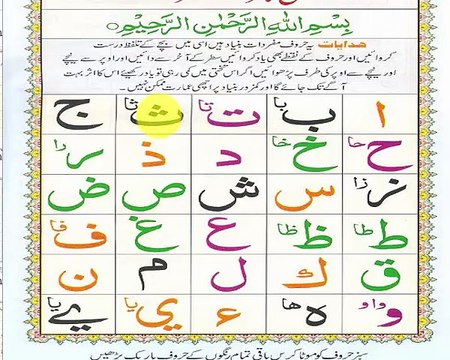 بِسْمِ اللهِ الرَّحْمٰنِ الرَّحِيْمِ
ھدایات یہ حروف مفردات بنیاد ہیں اسی میں بچے کے تلفظ درست
کروائیں اور حروف کے نقطے بھی یاد کروائیں سطر کے آخر سے دائیں اور اوپر سے نیچے
اور نیچے سے اوپر کی طرف پڑھوائیں اگر اس تختی میں کمی رہی تو یاد رکھیئے اس کا اثر بہت
آگے تک جائے گا اور کمزور بنیاد پر اچھی عمارت ممکن نہیں۔
ا ب با ت تا ث ثا ج
ح حا خ خا د ذ ر را
ز زا س ش ص ض
ط طا ظ ظا ع غ ف فا
ق ك ل م ن
و واو ہ ھا ء ي یا ے یا
سبز حروف کو موٹا کریں باقی تمام رنگوں کے حروف باریک پڑھیں